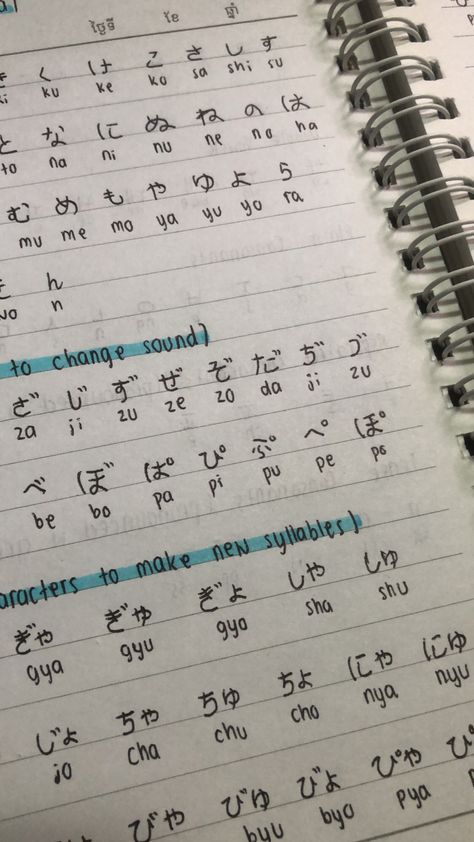 く け こ さ し す
ki ku ke ko sa shi su
と な に ぬ ね の は
to na ni nu ne no ha
む め も や ゆ よ ら
mu me mo ya yu yo ra
を ん
wo n
to change sound)
ざ じ ず ぜ ぞ だ ぢ づ
za ji zu ze zo da ji zu
べ ぼ ぱ ぴ ぷ ぺ ぽ
be bo pa pi pu pe po
aracters to make new syllables)
ぎゃ ぎゅ ぎょ しゃ しゅ
gya gyu gyo sha shu
じょ ちゃ ちゅ ちょ にゃ にゅ
jo cha chu cho nya nyu
びゃ びゅ びょ ぴゃ
byu byo pya